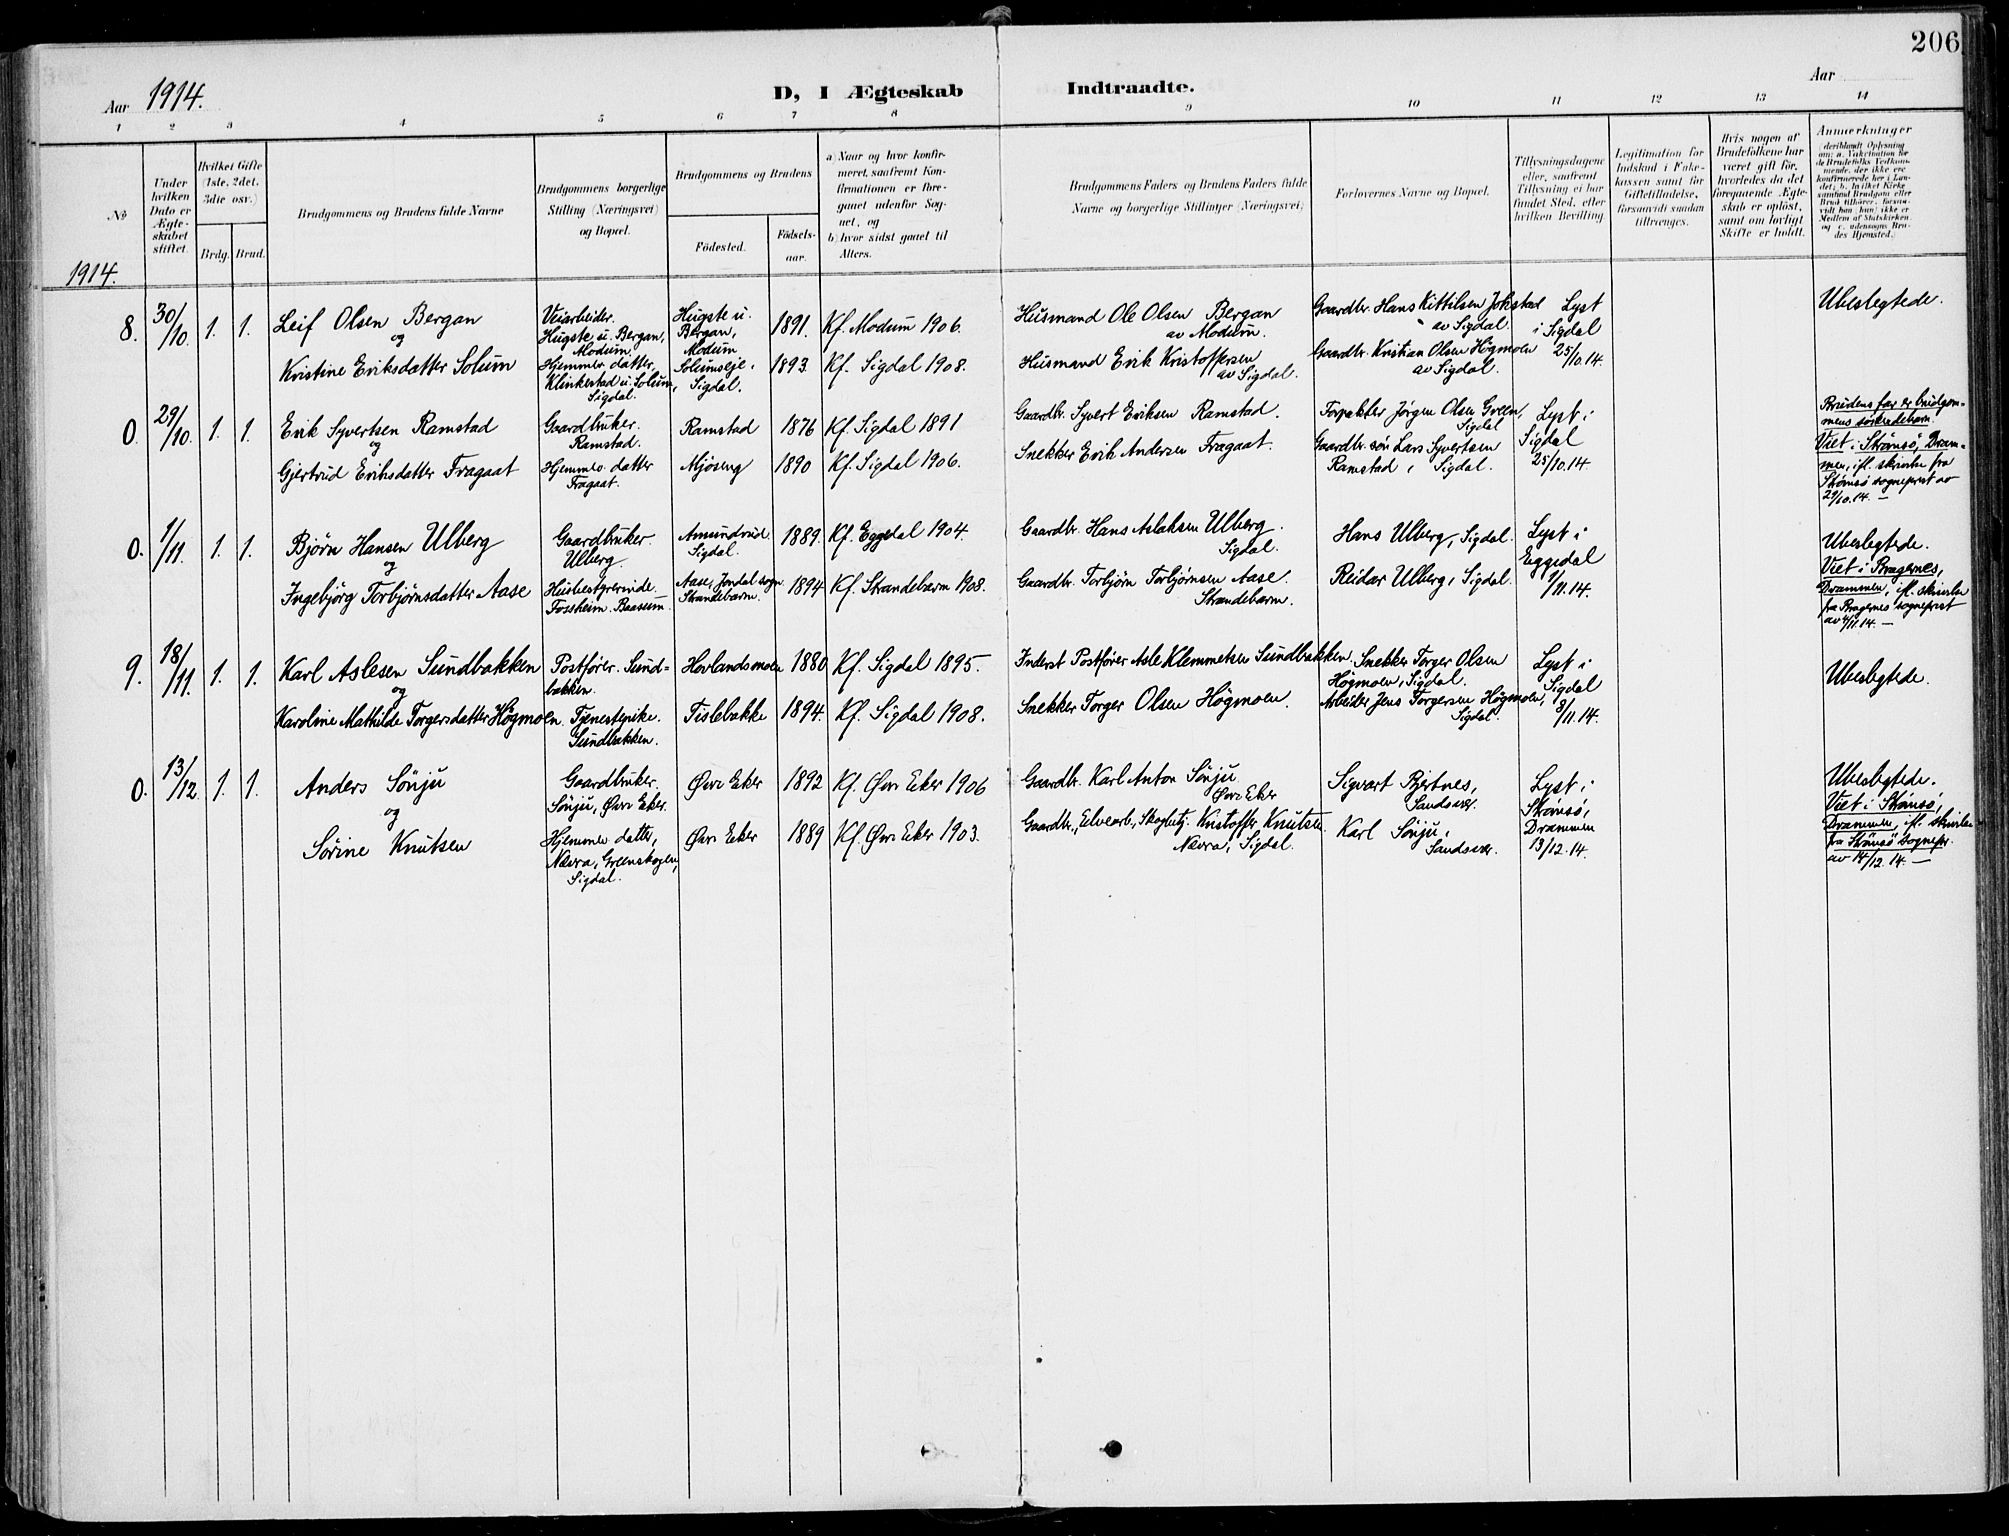 206
Aar 1914.
D, I Ægteskab Indtraadte.
Aar
1 2 3 4 5 6 7 8 9 10 11 12 13 14
No
Under hvilken Dato er Ægteskabet stiftet.
Hvilket Gifte (1ste, 2det, 3die osv.)
Brdg. Brud.
Brudgommens og Brudens fulde Navne
Brudgommens borgerlige Stilling (Næringsvei) og Bopæl.
Brudgommens og Brudens
Fødested.
Fødselsaar.
a) Naar og hvor konfirmeret, saafremt Konfirmationen er foregaaet udenfor Sognet, og
b) hvor sidst gaaet til Alters.
Brudgommens Faders og Brudens Faders fulde Navne og borgerlige Stillinger (Næringsvei)
Forlovernes Navne og Bopæl.
Tillysningsdagene eller, saafremt Tillysning ei har fundet Sted, efter hvilken Bevilling.
Legitimation for Indskud i Enkekassen samt for Giftetilladelse, forsaavidt saadan tiltrænges.
Hvis nogen af Brudefolkene har været gift før, hvorledes da det foregaaende Ægteskab er opløst, samt om lovligt Skifte er holdt.
Anmærkninger (deriblandt Oplysning om: a. Vakcination for de Brudefolks Vedkommende, der ikke ere konfirmerede her i Landet; b. hvilket Kirkesamfund Brudgom eller Brud tilhører, forsaavidt han (hun) ikke er Medlem af Statskirken, og c. udensogns Brudes Hjemsted.)
1914.
8. 30/10. 1. 1. Leif Olsen Bergan
og
Kristine Eriksdatter Solum
Veiarbeider.
Hugste u. Bergan,
Modum.
Hjemmev. datter,
Klinkestad u. Solum,
Sigdal.
Hugste u.
Bergan,
Modum
Solumseje,
Sigdal.
1891.
1893.
Kf. Modum 1906.
Kf. Sigdal 1908.
Husmand Ole Olsen Bergan
av Modum.
Husmand Erik Kristoffersen
av Sigdal.
Gaardbr. Hans Kittilsen Jokstad
av Sigdal.
Gaardbr. Kristian Olsen Högmoen
av Sigdal.
Lyst
i Sigdal
25/10.14.
Ubeslegtede.
0. 29/10. 1. 1. Erik Syvertsen Ramstad
og
Gjertrud Eriksdatter Fragaat
Gaardbruker.
Ramstad.
Hjemmev. datter
Fragaat.
Ramstad
Mjöseng
1876
1890
Kf. Sigdal 1891
Kf. Sigdal 1906.
Gaardbr. Syvert Eriksen Ramstad.
Snekker Erik Andersen Fragaat.
Forpakter Jörgen Olsen Green,
Sigdal
Gaardbr. sön Lars Syvertsen
Ramstad, Sigdal.
Lyst i
Sigdal
25/10.14.
Brudens far er brudgommens söskendebarn.
Viet i Strömsö, Drammen, ifl. skrivelse fra
Strömsö sogneprest av
29/10.14. —
0. 1/11. 1. 1. Bjørn Hansen Ulberg
og
Ingebjörg Torbjörnsdatter Aase
Gaardbruker.
Ulberg.
Husbestyrerinde.
Fossheim. Baasum.
Amundrud.
Sigdal.
Aase, Jondal sogn
Strandebarm.
1889.
1894
Kf. Eggedal 1904.
Kf. Strandebarm 1908.
Gaardbr. Hans Aslaksen Ulberg.
Sigdal.
Gaardbr. Torbjörn Torbjörnsen Aase.
Strandebarm.
Hans Ulberg, Sigdal.
Reidar Ulberg, Sigdal.
Lyst i
Eggedal
1/11.14.
Ubeslegtede.
Viet i Bragernes,
Drammen, ifl. skrivelse
fra Bragernes sogneprest
av 4/11.14. —
9. 18/11. 1. 1. Karl Aslesen Sundbakken
og
Karoline Mathilde Torgersdatter Högmoen
Postfører. Sundbakken.
Tjenestepike.
Sundbakken.
Hovlandsmoen
Tislebakke
1880
1894.
Kf. Sigdal 1895.
Kf. Sigdal 1908.
Inderst Postfører Asle Klemmetsen Sundbakken.
Snekker Torger Olsen Högmoen.
Snekker Torger Olsen
Högmoen, Sigdal.
Arbeider Jens Torgersen Högmoen,
Sigdal.
Lyst i
Sigdal
8/11.14.
Ubeslegtede.
0. 13/12. 1. 1. Anders Sönju
og
Sörine Knutsen
Gaardbruker.
Sönju, Øvre Eker.
Hjemmev. datter,
Nævra, Greenskogen,
Sigdal.
Øvre Eker
Øvre Eker
1892
1889
Kf. Øvre Eker 1906
Kf. Øvre Eker 1903.
Gaardbr. Karl Anton Sönju
Øvre Eker
Gaardbr., Elvearb., Skogbetj. Kristoffer Knutsen.
Nævra, Sigdal.
Sigvart Bjertnes,
Sandsvær.
Karl Sönju,
Sandsvær.
Lyst i
Strömsö,
Drammen
13/12.14.
Ubeslegtede.
Viet i Strömsö,
Drammen, ifl. skrivelse
fra Strömsö sognepr.
av 14/12.14. —